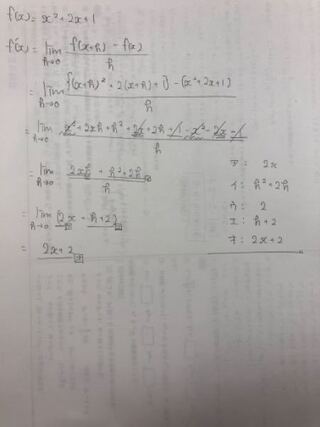 f(x) = x² + 2x + 1
f'(x) = lim h→0 f(x+h) - f(x) / h
= lim h→0 {(x+h)² + 2(x+h) + 1} - (x² + 2x + 1) / h
= lim h→0 x² + 2xh + h² + 2x + 2h + 1 - x² - 2x - 1 / h
= lim h→0 2xh + h² + 2h / h
= lim h→0 (2x + h + 2)
= 2x + 2
ア: 2x
イ: h² + 2h
ウ: 2
エ: h + 2
オ: 2x + 2